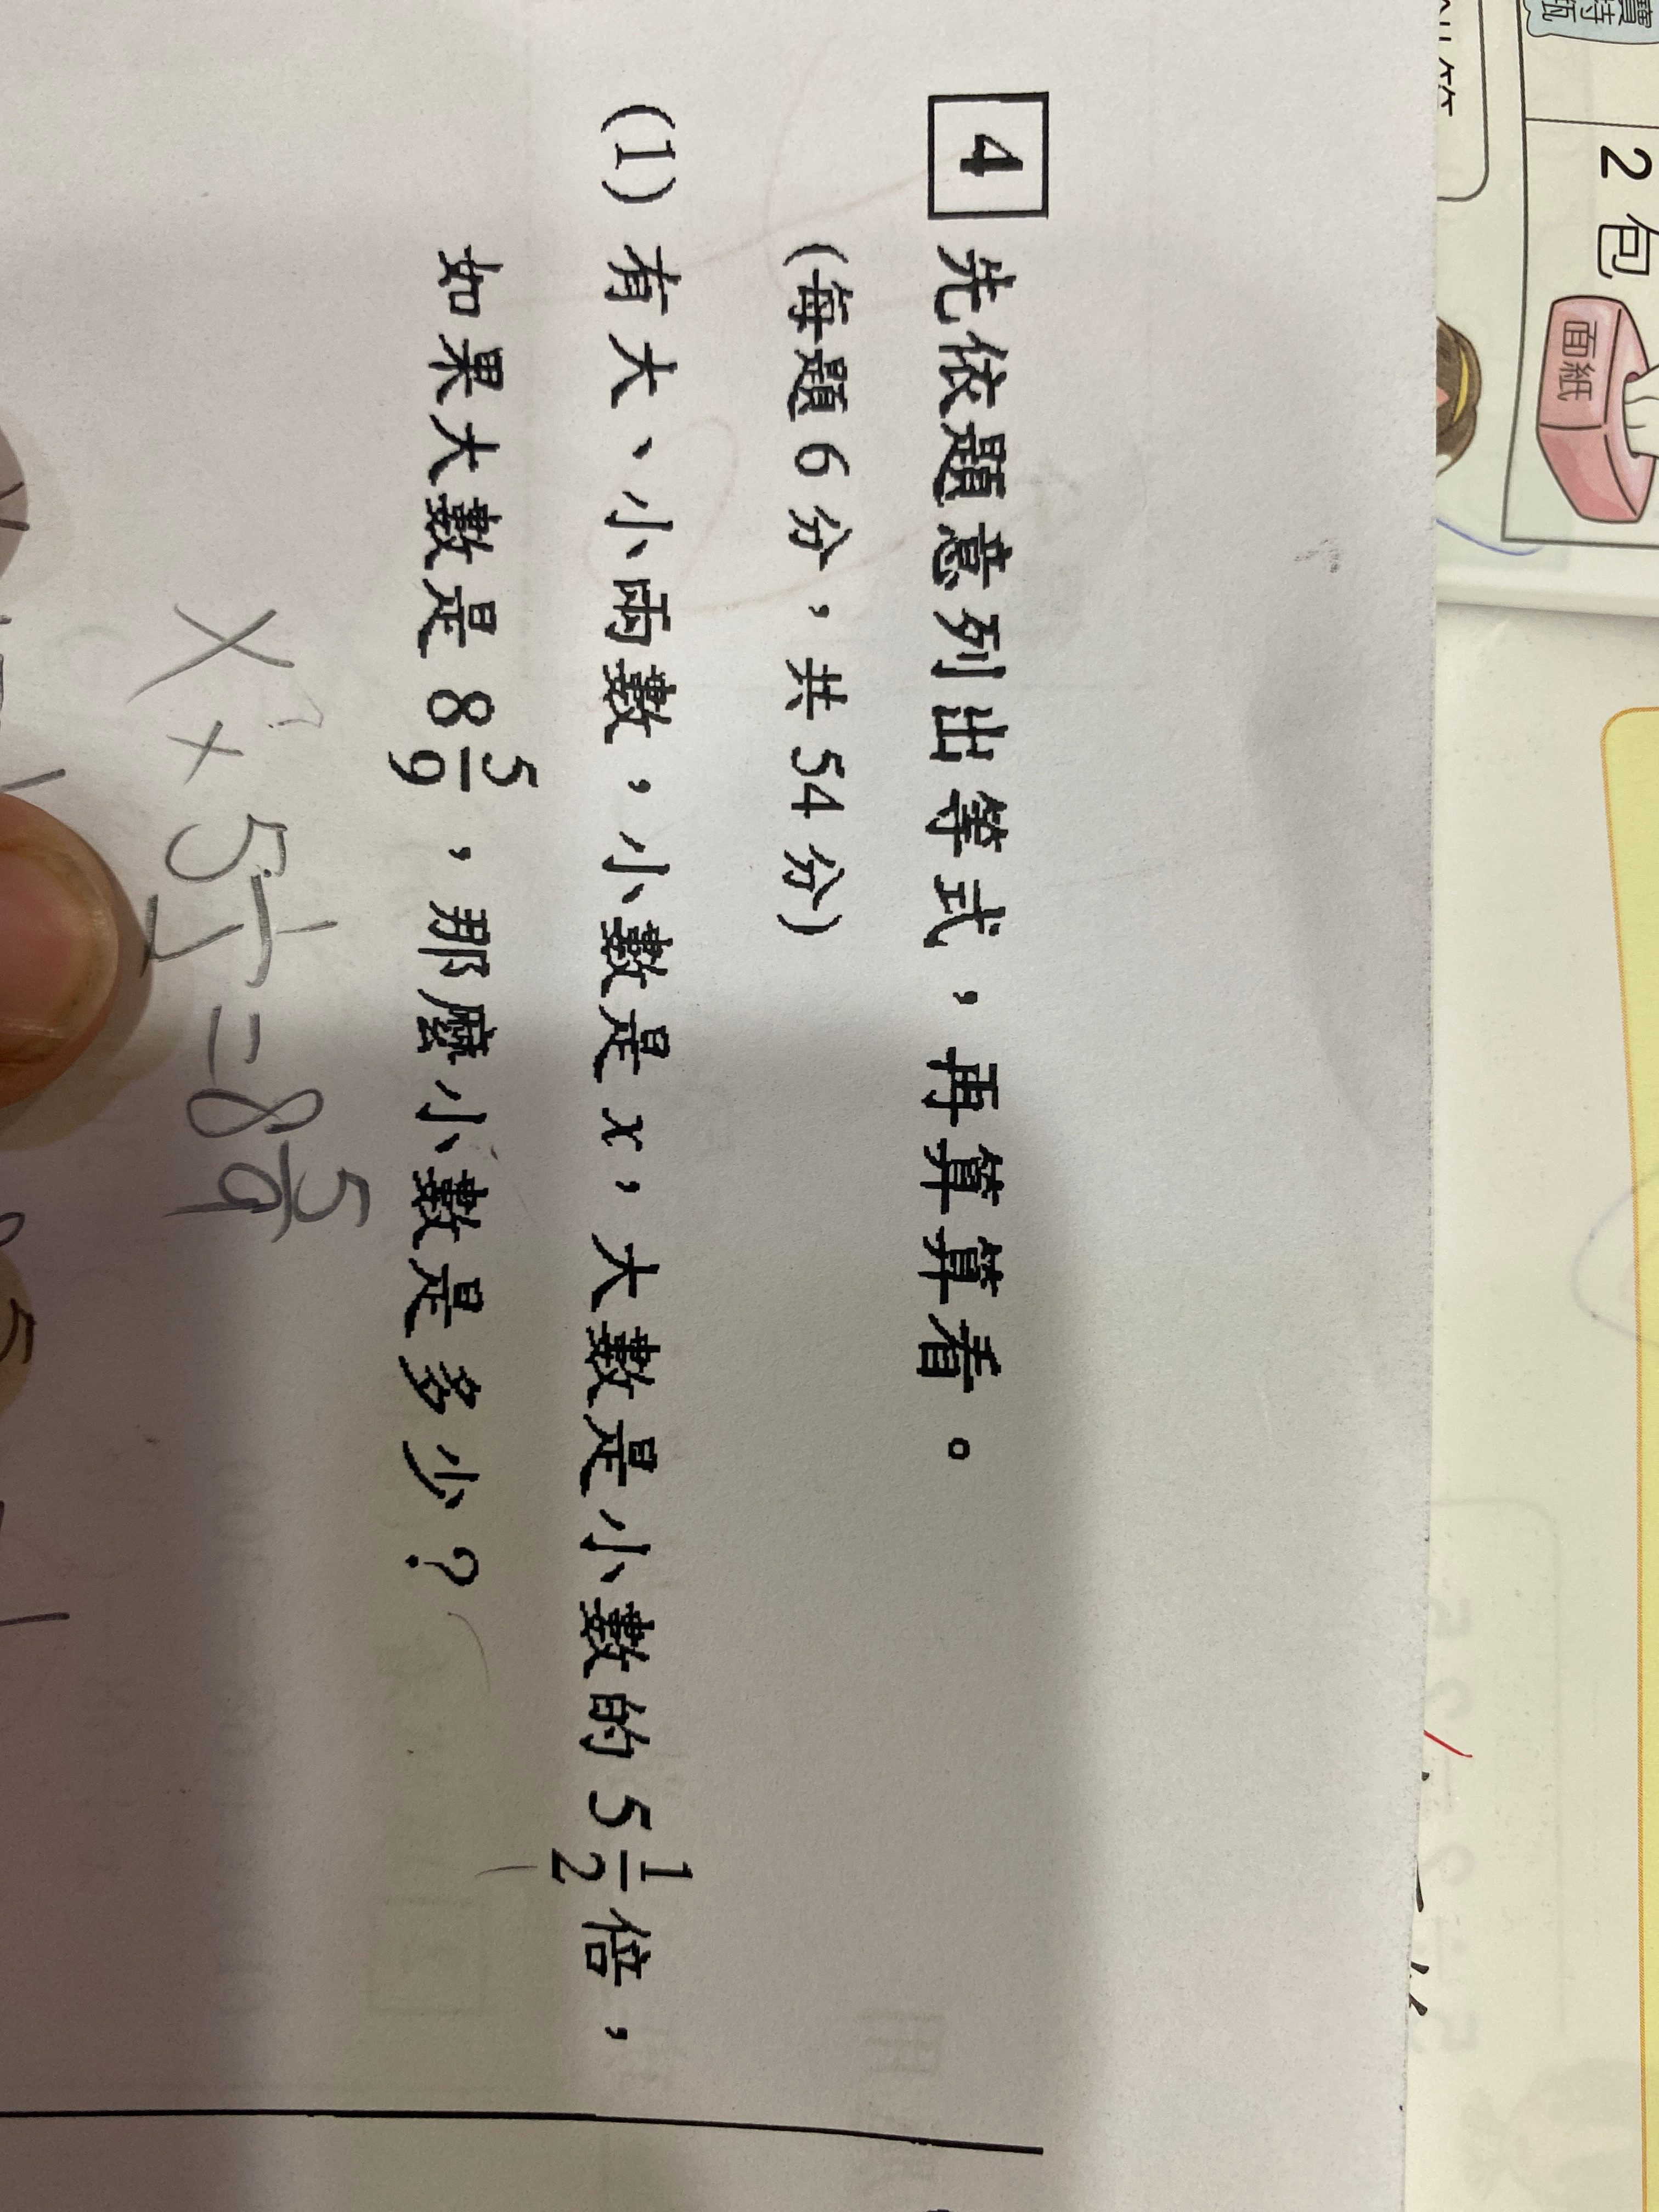 4 先依題意列出等式，再算算看。
(每題6分，共54分)
(1) 有大、小兩數，小數是x，大數是小數的5 1/2倍，
如果大數是8 5/9，那麼小數是多少？
X × 5 1/2 = 8 5/9
2包
面紙